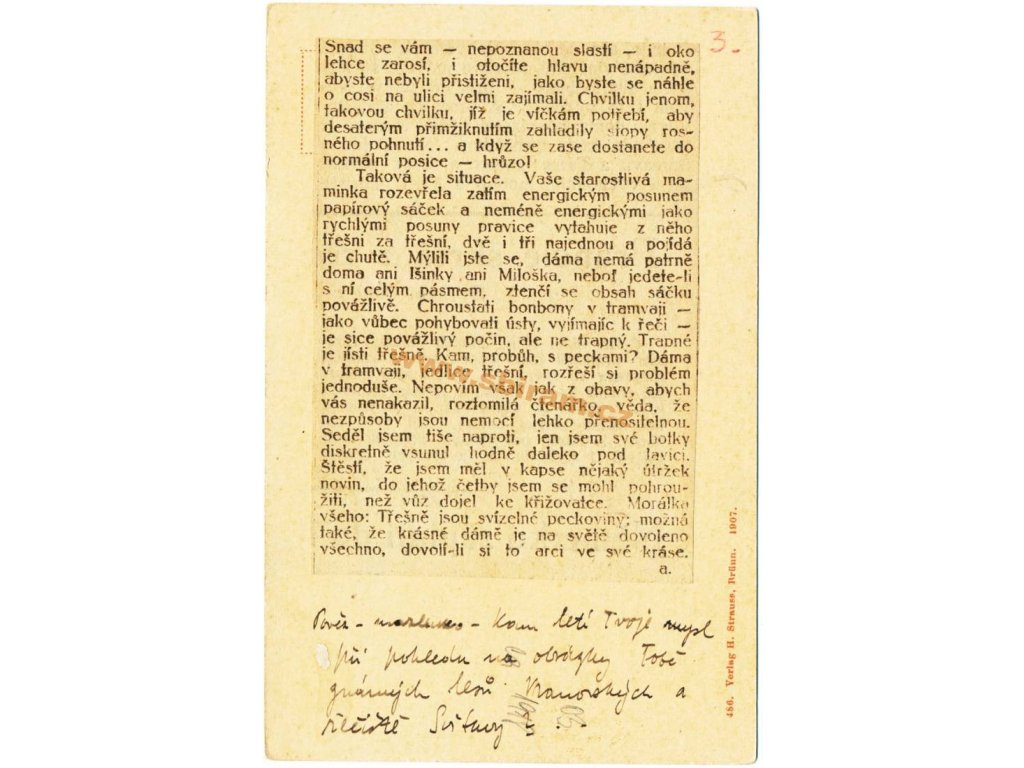 3.
Snad se vám — nepoznanou slastí — i oko
lehce zarosí, i otočíte hlavu nenápadně,
abyste nebyli přistiženi, jako byste se náhle
o cosi na ulici velmi zajímali. Chvilku jenom,
takovou chvilku, jíž je víčkám potřebí, aby
desaterým přimžiknutím zahladily stopy ros-
ného pohnutí... a když se zase dostanete do
normální posice — hrůzo!
Taková je situace. Vaše starostlivá ma-
minka rozevřela zatím energickým posunem
papírový sáček a neméně energickými jako
rychlými posuny pravice vytahuje z něho
třešni za třešní, dvě i tři najednou a pojídá
je chutě. Mýlili jste se, dáma nemá patrně
doma ani Išinky ani Miloška, neboť jedete-li
s ní celým pásmem, ztenčí se obsah sáčku
povážlivě. Chroustati bonbony v tramvaji —
jako vůbec pohybovati ústy, vyjímajíc k řeči —
je sice povážlivý počin, ale ne trapný. Trapné
je jísti třešně. Kam, probůh, s peckami? Dáma
v tramvaji, jedlice třešní, rozřeší si problém
jednoduše. Nepovím však jak z obavy, abych
vás nenakazil, roztomilá čtenářko, věda, že
nezpůsoby jsou nemocí lehko přenositelnou.
Seděl jsem tiše naproti, jen jsem své botky
diskretně vsunul hodně daleko pod lavici.
Štěstí, že jsem měl v kapse nějaký útržek
novin, do jehož četby jsem se mohl pohrou-
žiti, než vůz dojel ke křižovatce. Morálka
všeho: Třešně jsou svízelné peckoviny; možná
také, že krásné dámě je na světě dovoleno
všechno, dovolí-li si to arci ve své kráse.
a.
www.sbiram.cz
486. Verlag H. Strauss, Brünn. 1907.
Kam letí Tvoje mysl
při pohledu na obrázky Tobě
známých lesů Vranovských a
řečiště Svitavy